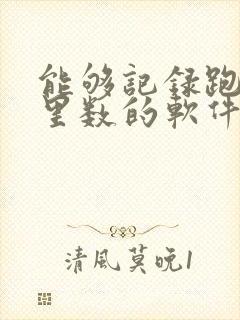 能够記録跑
里数的軟件
清風莫晚1